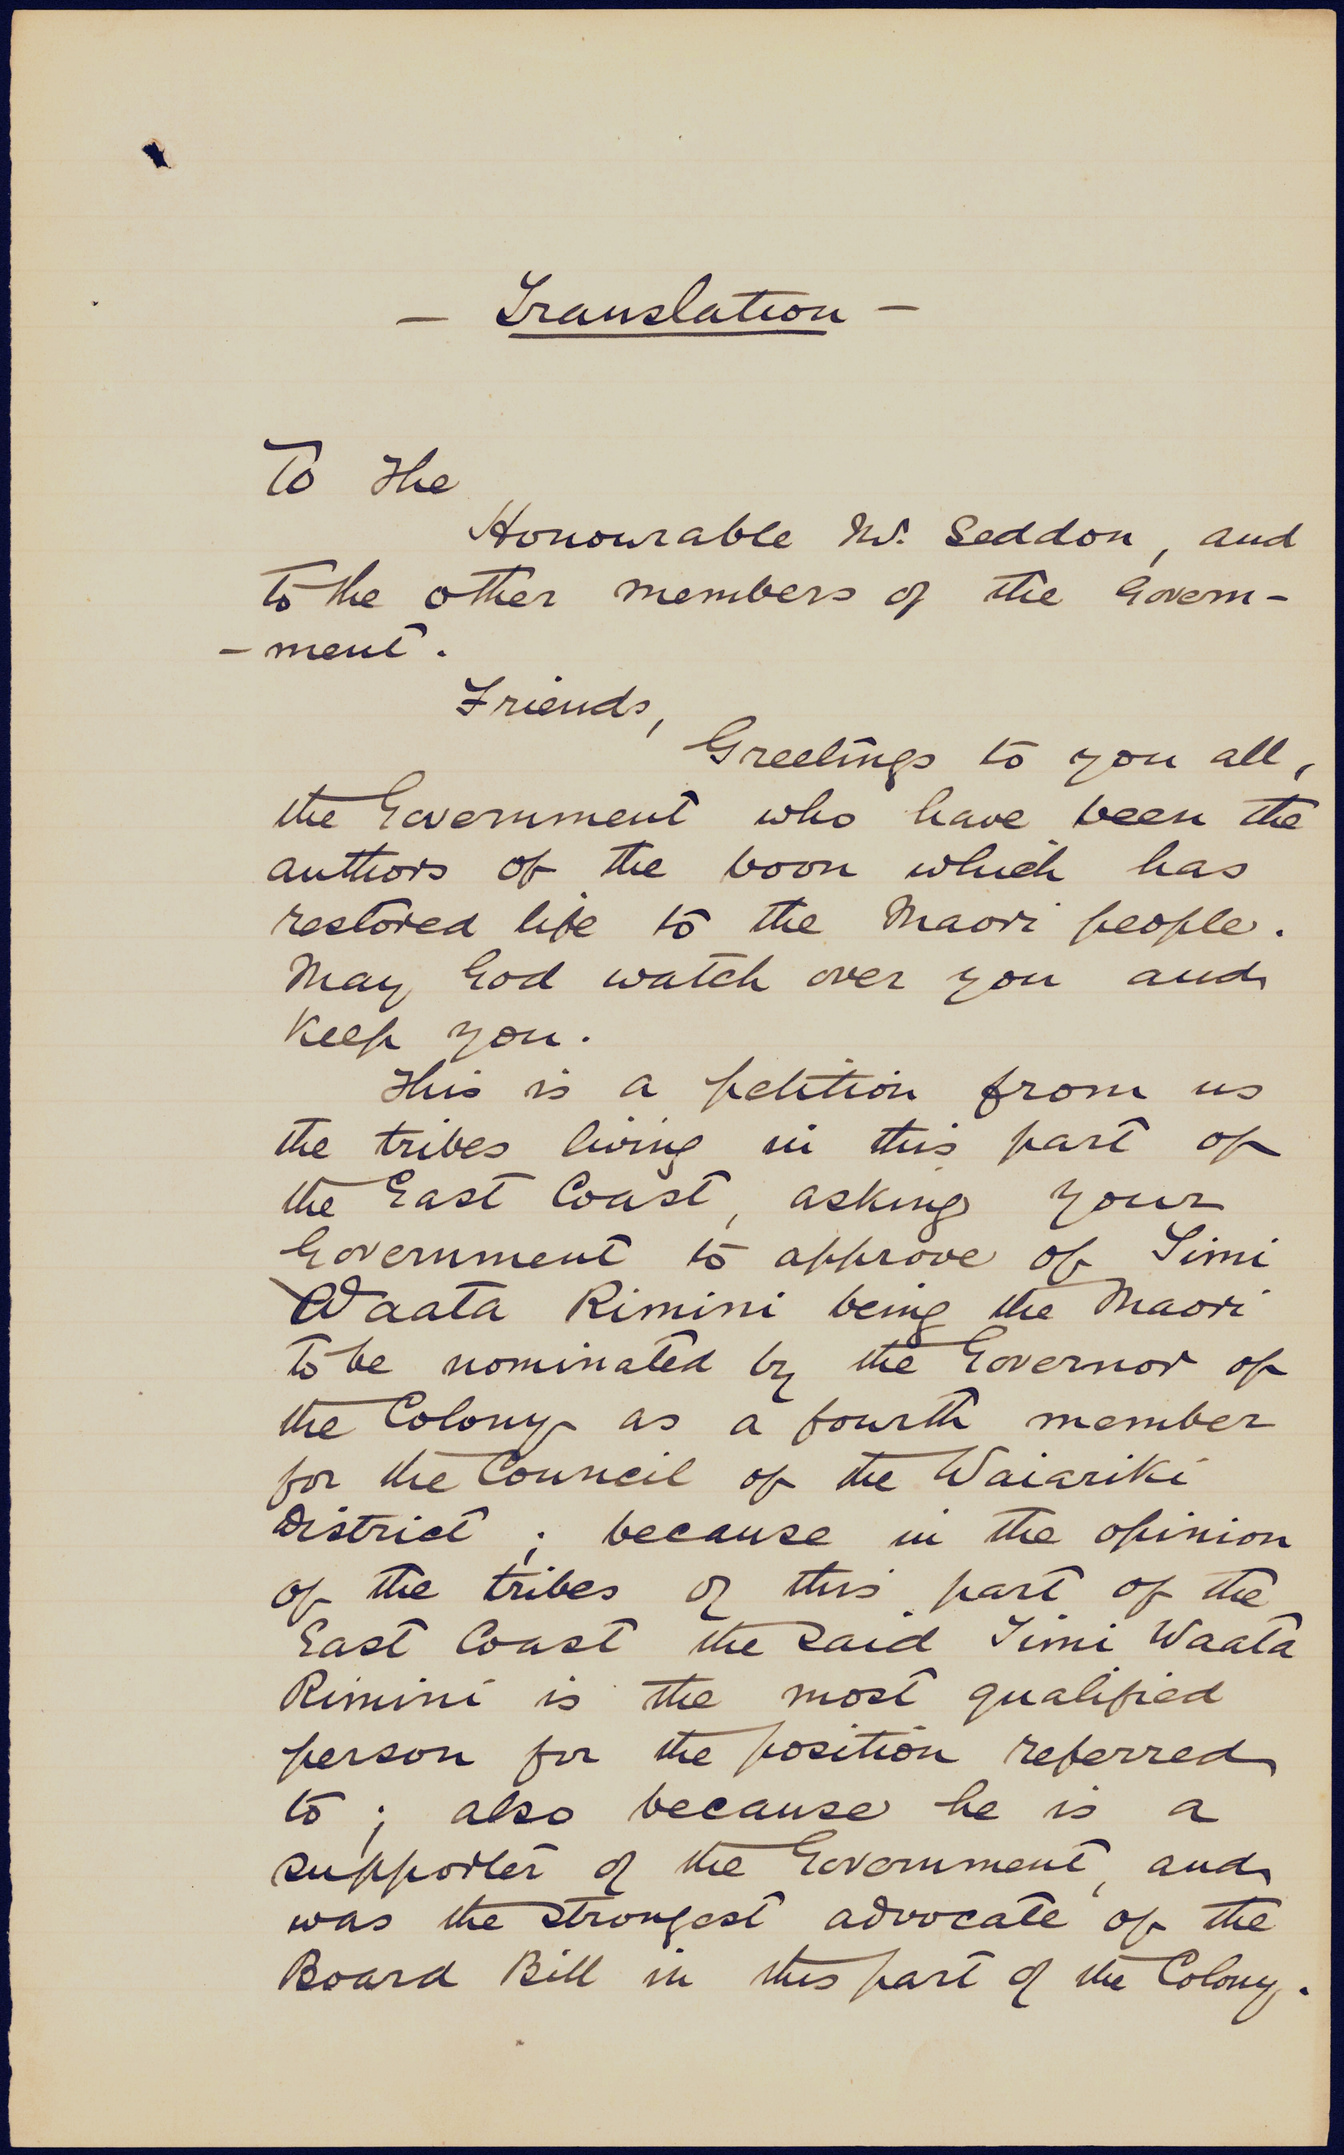 — Translation —
To The
Honourable Mr. Seddon, and
to the other members of the Govern-
- ment.
Friends,
Greetings to you all,
the Government who have been the
authors of the boon which has
restored life to the Maori people.
May God watch over you and
keep you.
This is a petition from us
the tribes living in this part of
the East Coast, asking your
Government to approve of Timi
Waata Rimini being the Maori
to be nominated by the Governor of
the Colony as a fourth member
for the Council of the Waiariki
District ; because in the opinion
of the tribes of this part of the
East Coast the said Timi Waata
Rimini is the most qualified
person for the position referred
to ; also because he is a
supporter of the Government, and
was the strongest advocate of the
Board Bill in this part of the Colony.